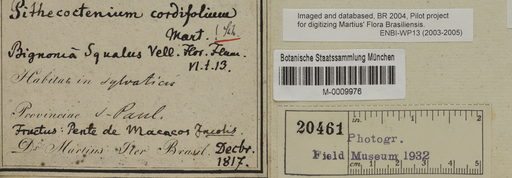 Pithecoctenium cordifolium
Mart.
Bignonia Squalus Vell. Flor. Flum.
VI. t. 13.
Habitat in sylvaticis
Provinciae S. Paul.
Fructus: Pente de Macacos Incolis.
Dr. Martius Iter Brasil. Decbr.
1817.
Imaged and databased, BR 2004, Pilot project
for digitizing Martius' Flora Brasiliensis.
ENBI-WP13 (2003-2005)
Botanische Staatssammlung München
M-0009976
in. 1 2
20461
Photogr.
Field Museum 1932
cm. 1 2 3 4 5